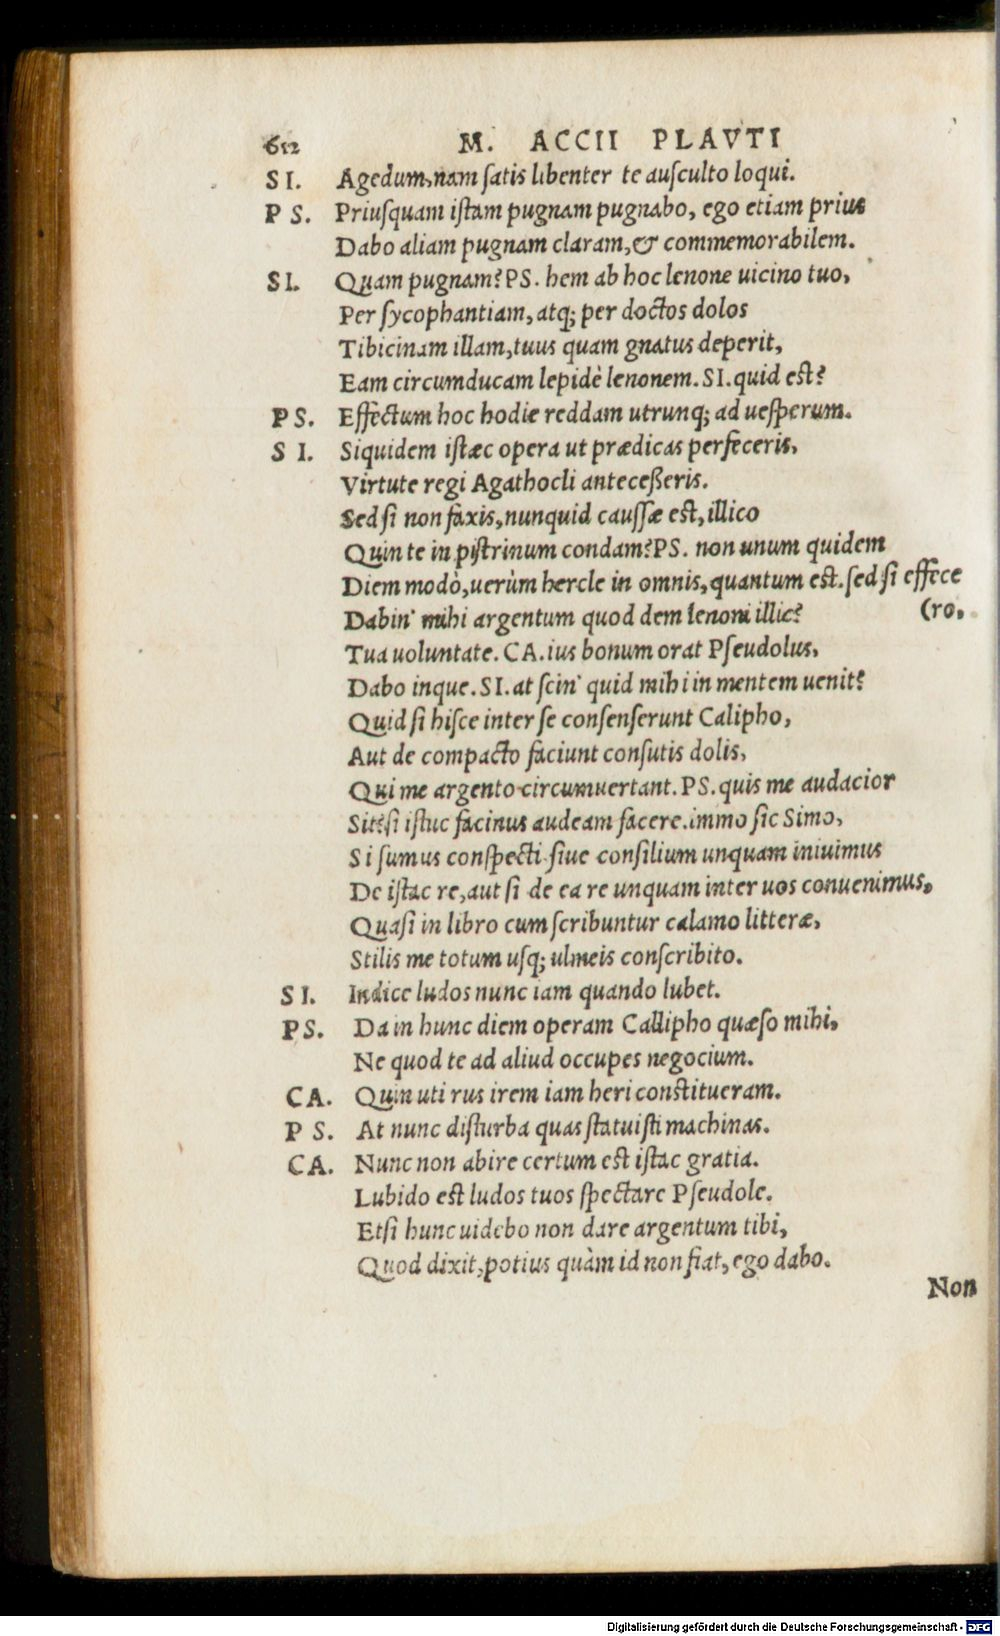 612 M. ACCII PLAVTI
SI. Agedum, nam ſatis libenter te auſculto loqui.
PS. Priuſquam iſtam pugnam pugnabo, ego etiam prius
Dabo aliam pugnam claram, & commemorabilem.
SI. Quam pugnam? PS. hem ab hoc lenone uicino tuo,
Per ſycophantiam, atq; per doctos dolos
Tibicinam illam, tuus quam gnatus deperit,
Eam circumducam lepidè lenonem. SI. quid est?
PS. Effectum hoc hodie reddam utrunq; ad ueſperum.
SI. Siquidem iſtæc opera ut prædicas perfeceris,
Virtute regi Agathocli anteceßeris.
Sed ſi non faxis, nunquid cauſſæ est, illico
Quin te in piſtrinum condam? PS. non unum quidem
Diem modò, uerùm hercle in omnis, quantum est. ſed ſi effece
(ro,
Dabin' mihi argentum quod dem lenoni illic?
Tua uoluntate. CA. ius bonum orat Pſeudolus,
Dabo inque. SI. at ſcin' quid mihi in mentem uenit?
Quid ſi hiſce inter ſe conſenſerunt Calipho,
Aut de compacto faciunt conſutis dolis,
Qui me argento circumuertant. PS. quis me audacior
Sit? ſi iſtuc facinus audeam facere. immo ſic Simo,
Si ſumus conſpecti ſiue conſilium unquam iniuimus
De iſtac re, aut ſi de ea re unquam inter uos conuenimus,
Quaſi in libro cum ſcribuntur calamo litteræ,
Stilis me totum uſq; ulmeis conſcribito.
SI. Indice ludos nunc iam quando lubet.
PS. Da in hunc diem operam Callipho quæſo mihi,
Ne quod te ad aliud occupes negocium.
CA. Quin uti rus irem iam heri constitueram.
PS. At nunc diſturba quas ſtatuiſti machinas.
CA. Nunc non abire certum est iſtac gratia.
Lubido est ludos tuos ſpectare Pſeudole.
Etſi hunc uidebo non dare argentum tibi,
Quod dixit, potius quàm id non fiat, ego dabo.
Non
Digitalisierung gefördert durch die Deutsche Forschungsgemeinschaft - DFG